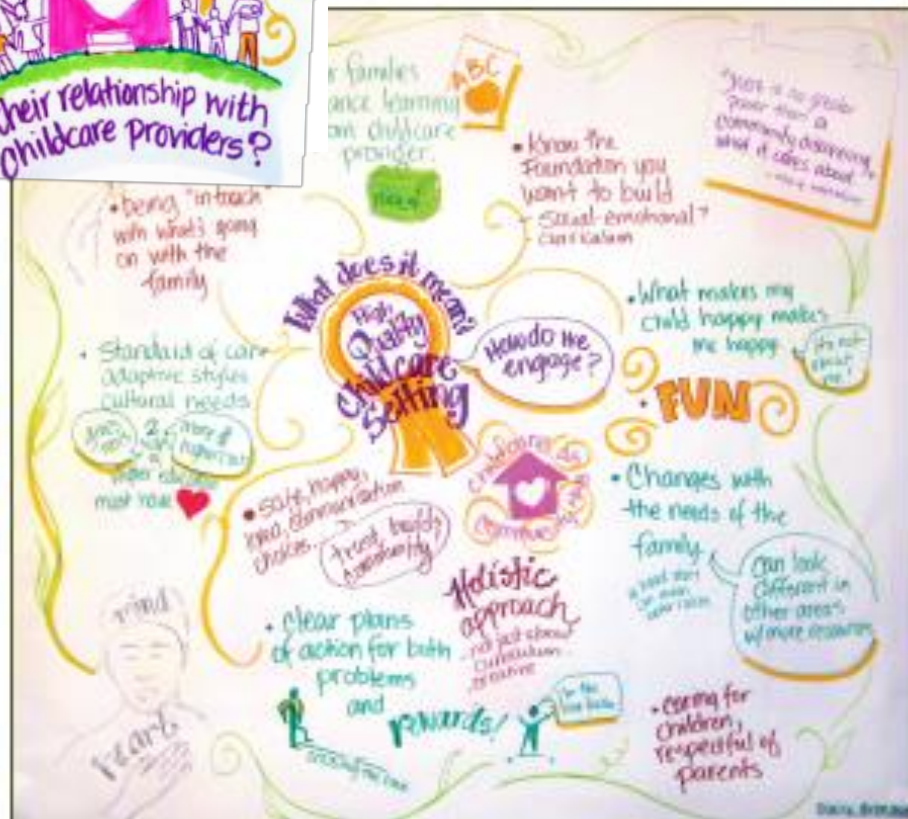 their relationship with
childcare providers?
families
learning
childcare
provider.
ABC
• know the
Foundation you
want to build
- social-emotional?
- curriculum
"There is no greater
power than a
community discovering
what it cares about."
• being "in touch"
with what's going
on with the
family
What does it mean?
High
Quality
Childcare
Setting
How do we
engage?
• What makes my
child happy makes
me happy
it's not
about
me!
• FUN
• Standard of care
adaptive styles
cultural needs
2
must have
• safe, happy,
communication
choices
trust builds
community!
childcare as
community
• Changes with
the needs of the
family
can look
different in
other areas
w/more resources
Holistic
approach
- not just
curriculum
- creative
• clear plans
of action for both
problems
and
rewards!
• caring for
children,
respectful of
parents
mind
heart